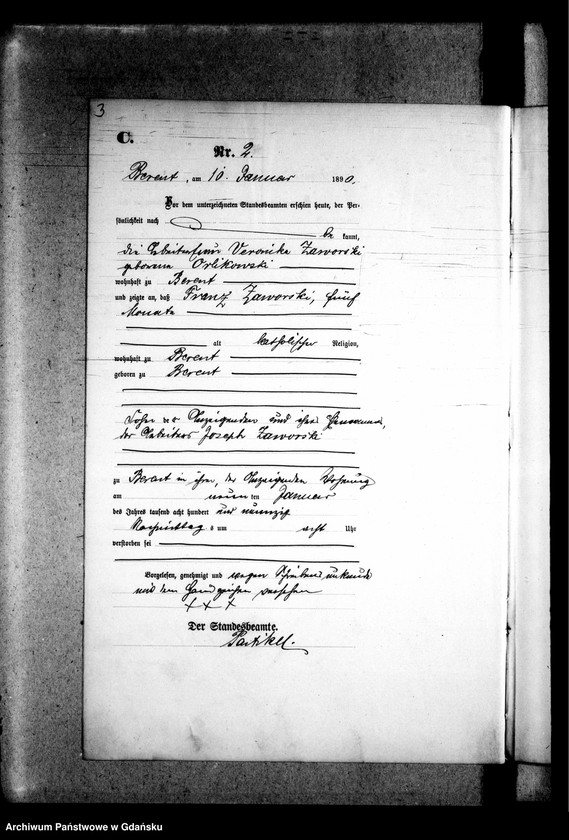 3
C.
Nr. 2.
Berent, am 10. Januar 1890.
Vor dem unterzeichneten Standesbeamten erschien heute, der Per-
sönlichkeit nach
be kannt,
die Arbeiterfrau Veronika Zaworski
geborene Orlikowski
wohnhaft zu Berent
und zeigte an, daß Franz Zaworski, fünf
Monate
alt katholischer Religion,
wohnhaft zu Berent
geboren zu Berent
Sohn der Anzeigenden und ihres Ehemannes,
des Arbeiters Joseph Zaworski
zu Berent in ihrer, der Anzeigenden Wohnung
am neun ten Januar
des Jahres tausend acht hundert und neunzig
Nachmittag s um acht Uhr
verstorben sei
Vorgelesen, genehmigt und wegen Schreibensunkunde
mit dem Handzeichen versehen
+ + +
Der Standesbeamte.
Partikel.
Archiwum Państwowe w Gdańsku